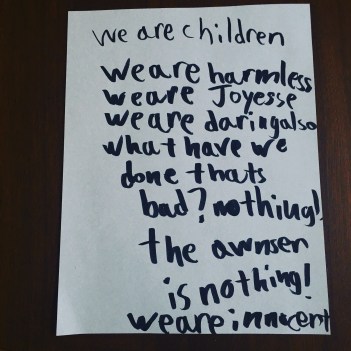 we are children
we are harmless
we are Joyesse
we are daring also
what have we
done thats
bad? nothing!
the awnser
is nothing!
we are innocent